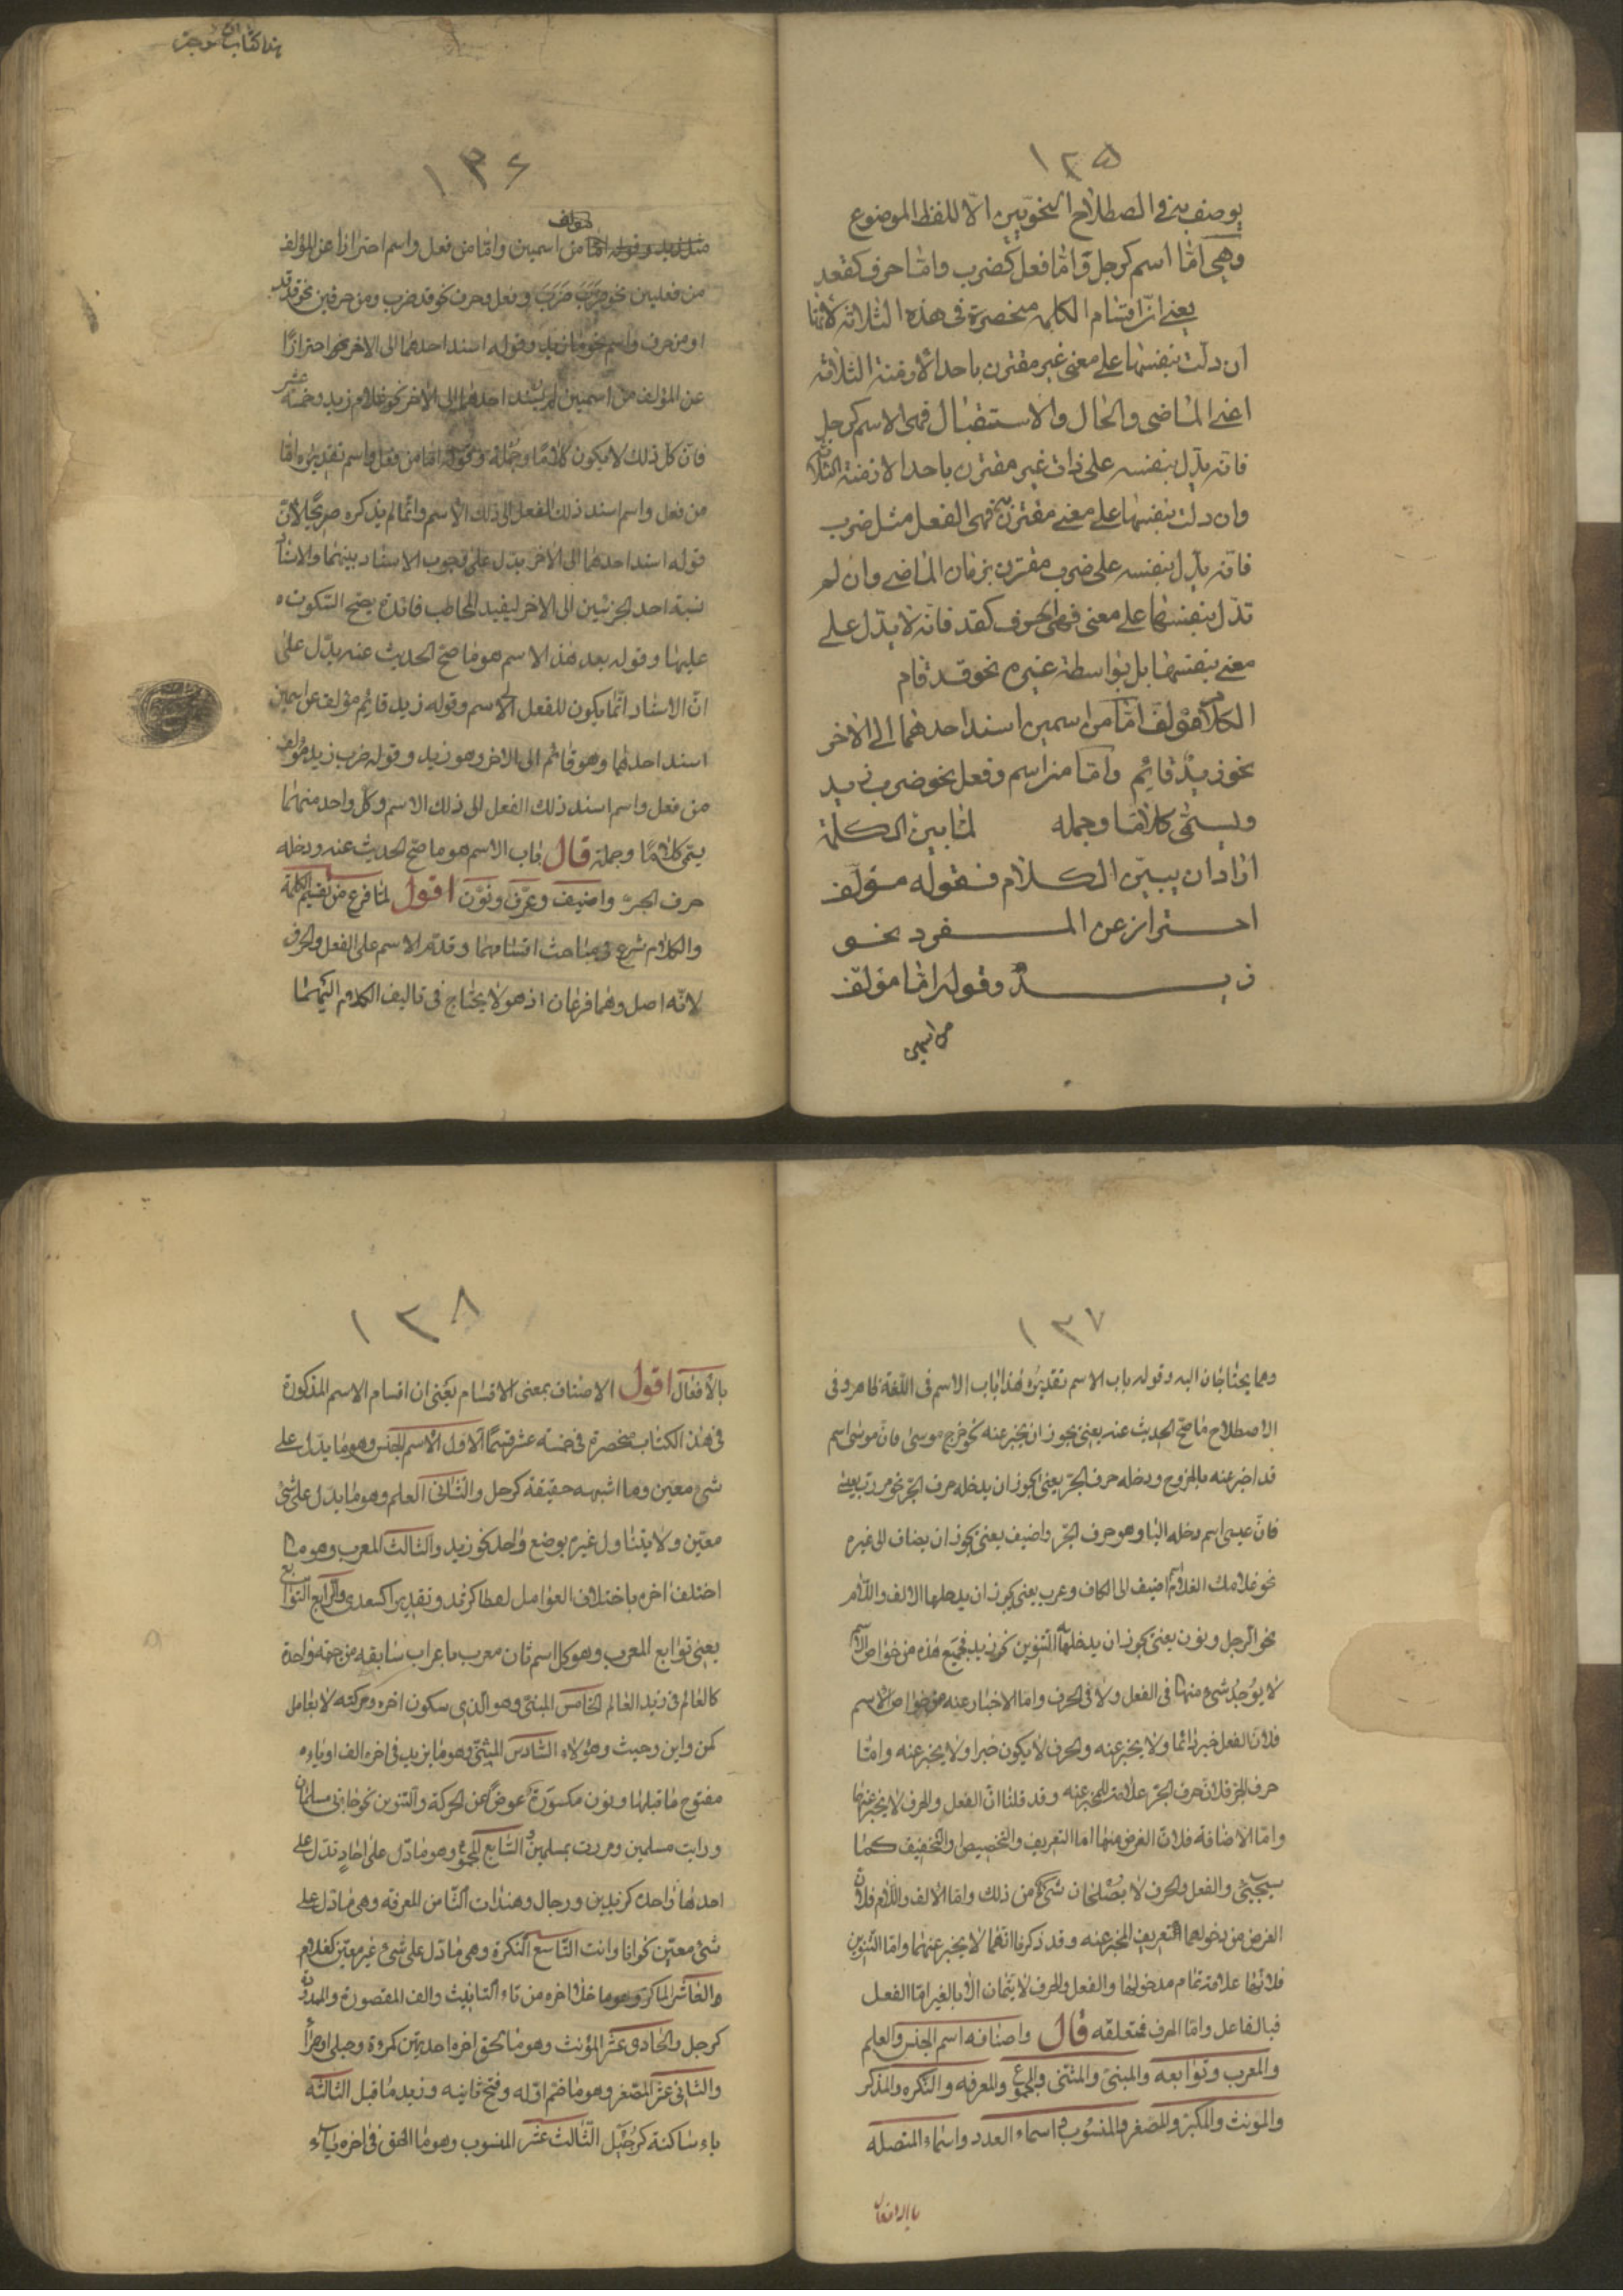 ١٣٥
يوصف بها في اصطلاح النحويين الا اللفظ الموضوع
وهي امّا اسم كرجل وامّا فعل كضرب وامّا حرف كقد
يعني انّ اقسام الكلمه منحصرة في هذه الثلاثة لانّها
ان دلت بنفسها على معنى غير مقترن باحد الازمنة الثلاثة
اعني الماضي والحال والاستقبال فهي الاسم كرجل
فانه يدّل بنفسه على ذات غير مقترن باحد الازمنة الثلاثة
وان دلت بنفسها على معنى مقترن بها فهي الفعل مثل ضرب
فانه يدّل بنفسه على ضرب مقترن بزمان الماضي وان لم
تدّل بنفسها على معنى فهي الحرف كقد فانّه لا يدّل على
معنى بنفسها بل بواسطة غيره نحو قد قام
الكلام مؤلف امّا من اسمين اسند احدهما الى الاخر
نحو زيدٌ قائم وامّا من اسم وفعل نحو ضرب زيد
ويسمّى كلامًا وجمله لمّا بين الكلمة
اراد ان يبيّن الكلام فقوله مؤلّف
احتراز عن المفرد نحو
زيد وقوله امّا مؤلّف
من اسمين
هذا كتاب
١٣٦
مؤلف
من اسمين وامّا من فعل واسم احترازا عن المؤلف
من فعلين نحو ضَرَبَ ضَرَبَ وفعل وحرف نحو قد ضرب ومن حرفين نحو قد قد
او من حرف واسم نحو ما زيد وقوله اسند احدهما الى الاخر احترازًا
عن المؤلف من اسمين لم يسند احدهما الى الاخر نحو غلام زيد وخمسة عشر
فانّ كلّ ذلك لا يكون كلامًا وجُملة وقوله امّا من فعل واسم تقديره امّا
من فعل واسم اسند ذلك الفعل الى ذلك الاسم وانّما لم يذكره صريحًا لانّ
قوله اسند احدهما الى الاخر يدّل على وجوب الاسناد بينهما والاسناد
نسبة احد الجزئين الى الاخر ليفيد المخاطب فائدة يصح السّكوت
عليها وقوله بعد هذا الاسم هو ما صحّ الحديث عنه يدّل على
انّ الاسناد انّما يكون للفعل الى الاسم وقوله زيد قائم مؤلف عن اسمين
اسند احدهما وهو قائم الى الاخر وهو زيد وقوله ضرب زيد مؤلف
من فعل واسم اسند ذلك الفعل الى ذلك الاسم وكلّ واحد منهما
يسمّى كلامًا وجملة قال باب الاسم هو ما صح الحديث عنه ودخله
حرف الجرّ واضيف وعرّف ونوّن اقول لمّا فرغ من تقسيم الكلمة
والكلام شرع في مباحث اقسامهما وقدّم الاسم على الفعل والحرف
لانّه اصل وهما فرعان اذ هو لا يحتاج في تاليف الكلام اليهما
١٣٧
وهما يحتاجان اليه وقوله باب الاسم تقديره هذا باب الاسم في اللّغة ظاهر وفي
الاصطلاح ما صحّ الحديث عنه يعني يجوز ان يخبر عنه نحو خرج موسى فانّ موسى اسم
قد اخبر عنه بالخروج ودخله حرف الجرّ يعني يجوز ان يدخله حرف الجرّ نحو مررت بعيسى
فانّ عيسى اسم دخله البا وهو حرف الجّر واضيف يعني يجوز ان يضاف الى غيره
نحو غلامك الغلام اضيف الى الكاف وعرب يعني يجوز ان يدخلها الالف واللّام
نحو الرجل ونون يعني يجوز ان يدخلها التّنوين نحو زيد فجميع هذه من خواص الاسم
لا يوُجدُ شيء منها في الفعل ولا في الحرف وامّا الاخبار عنه من خواص الاسم
فلانّ الفعل خبر دائما ولا يخبر عنه والحرف لا يكون خبرا ولا يخبر عنه وامّا
حرف الجر فلانّ حرف الجرّ علامة المخبر عنه وقد قلنا انّ الفعل والحرف لا يخبر عنهما
وامّا الاضافة فلانّ الغرض منها امّا التعريف والتخصيص والتخفيف كما
سيجيئ والفعل والحرف لا يصُلحان شيء من ذلك وامّا الالف واللّام فلانّ
الغرض من دخولهما التعريف المخبر عنه وقد ذكرنا انّهما لا يخبر عنهما وامّا التّنوين
فلانّها علامة تمام مدخولها والفعل والحرف لا يتمان الّا بالغير امّا الفعل
فبالفاعل وامّا الحرف فمتعلقه قال واصنافه اسم الجنس والعلم
والمعرب وتوابعه والمبنى والمثنى والمجموع والمعرفه والنكره والمذكر
والمونث والمكبر والمصغر والمنسُوب واسماء العدد واسماء المتصله
بالافعال
١٣٨
بالأفعال اقول الاصناف بمعنى الاقسام يعَني ان اقسام الاسم المذكورة
في هذا الكتاب منحصرة في خمسه عشر قسمًا الاول الاسم الجنس وهو ما يدّل على
شئ معيّن وما اشبهه حقيقة كرجل والثّاني العلم وهو ما يدّل على شئ
معيّن ولا يتناول غيره بوضع واحد نحو زيد والثالث المعرب وهو ما
اختلف اخره باختلاف العوامل لفظا كزيد وتقديرا كسعدى والرّابع التوابع
يعني توابع المعرب وهو كل اسم ثان معرب باعراب سابقه من جهة واحدة
كالعالم في زيد العالم الخامس المبنيّ وهو الّذي سكون اخره وحركته لا بعامل
كمن واين وحيث وهؤلاء السّادس المثنىّ وهو ما يزيد في اخره الف او ياء
مفتوح ما قبلها ونون مكسورة عوضًا عن الحركة والتنوين نحو جاءني مسلمان
ورايت مسلمين ومررت بمسلمين والسّابع المجموع وهو ما دّل على احادٍ تدّل على
احدها واحد كزيدين ورجال وهندات الثّامن المعرفه وهي ما دّل على
شئ معيّن نحو انا وانت التّاسع النّكرة وهي ما دّل على شئ غير معيّن كغلام
والعاشر المذكر وهو ما خلا اخره من تاء التانيث والف المقصورة والممدودة
كرجل والحادي عشر المؤنث وهو ما يلحق اخره احديهن كمروة وحبلى وحمراء
والثاني عشر المصّغر وهو ما ضم اوّله وفتح ثانيه وزيد ما قبل الثالثة
ياء ساكنة كرجُيل الثّالث عشر المنسوب وهو ما الحق في اخره ياء